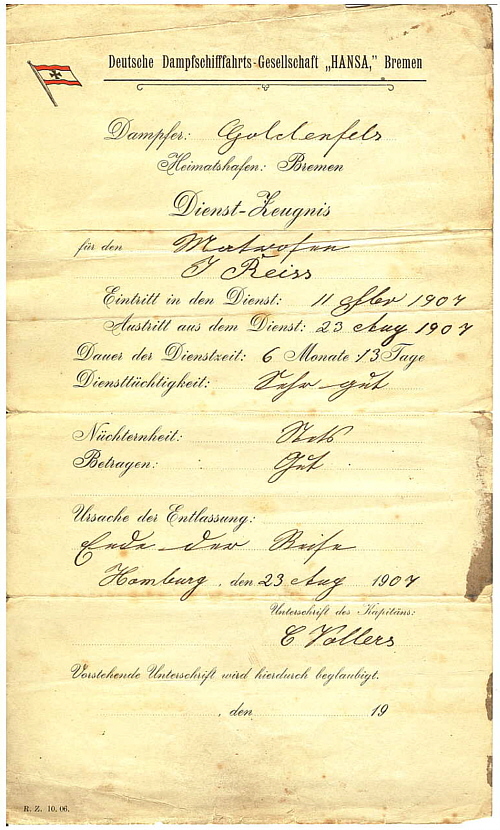 Deutsche Dampfschifffahrts-Gesellschaft „HANSA," Bremen
Dampfer: Goldenfels
Heimatshafen: Bremen
Dienst-Zeugnis
für den Matrosen
J Reiss
Eintritt in den Dienst: 11 Febr 1907
Austritt aus dem Dienst: 23 Aug 1907
Dauer der Dienstzeit: 6 Monate 13 Tage
Diensttüchtigkeit: Sehr gut
Nüchternheit: Stets
Betragen: Gut
Ursache der Entlassung:
Ende der Reise
Hamburg, den 23 Aug 1907
Unterschrift des Kapitäns:
C Vollers
Vorstehende Unterschrift wird hierdurch beglaubigt.
, den 19
R. Z. 10. 06.